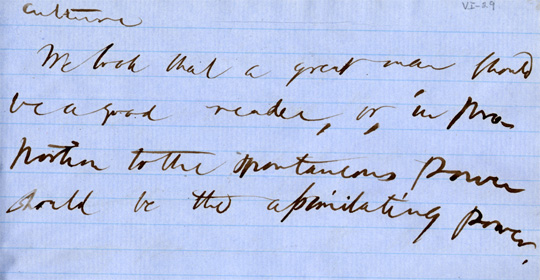 Culture
VI-29
We look that a great man should
be a good reader, or, in pro-
portion to the spontaneous power
should be the assimilating power.